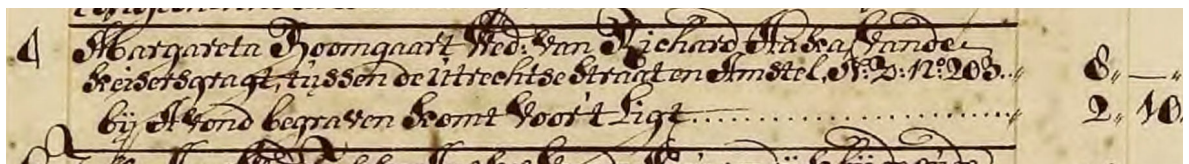 4 Margareta Boomgaart Wed: van Richard vande
Keisersgragt, tussen de Utrechtse Straat en Amstel, N: 2: N:o 203. 8,, —,,
bij Avond begraven komt voor't Ligt 2,, 10.